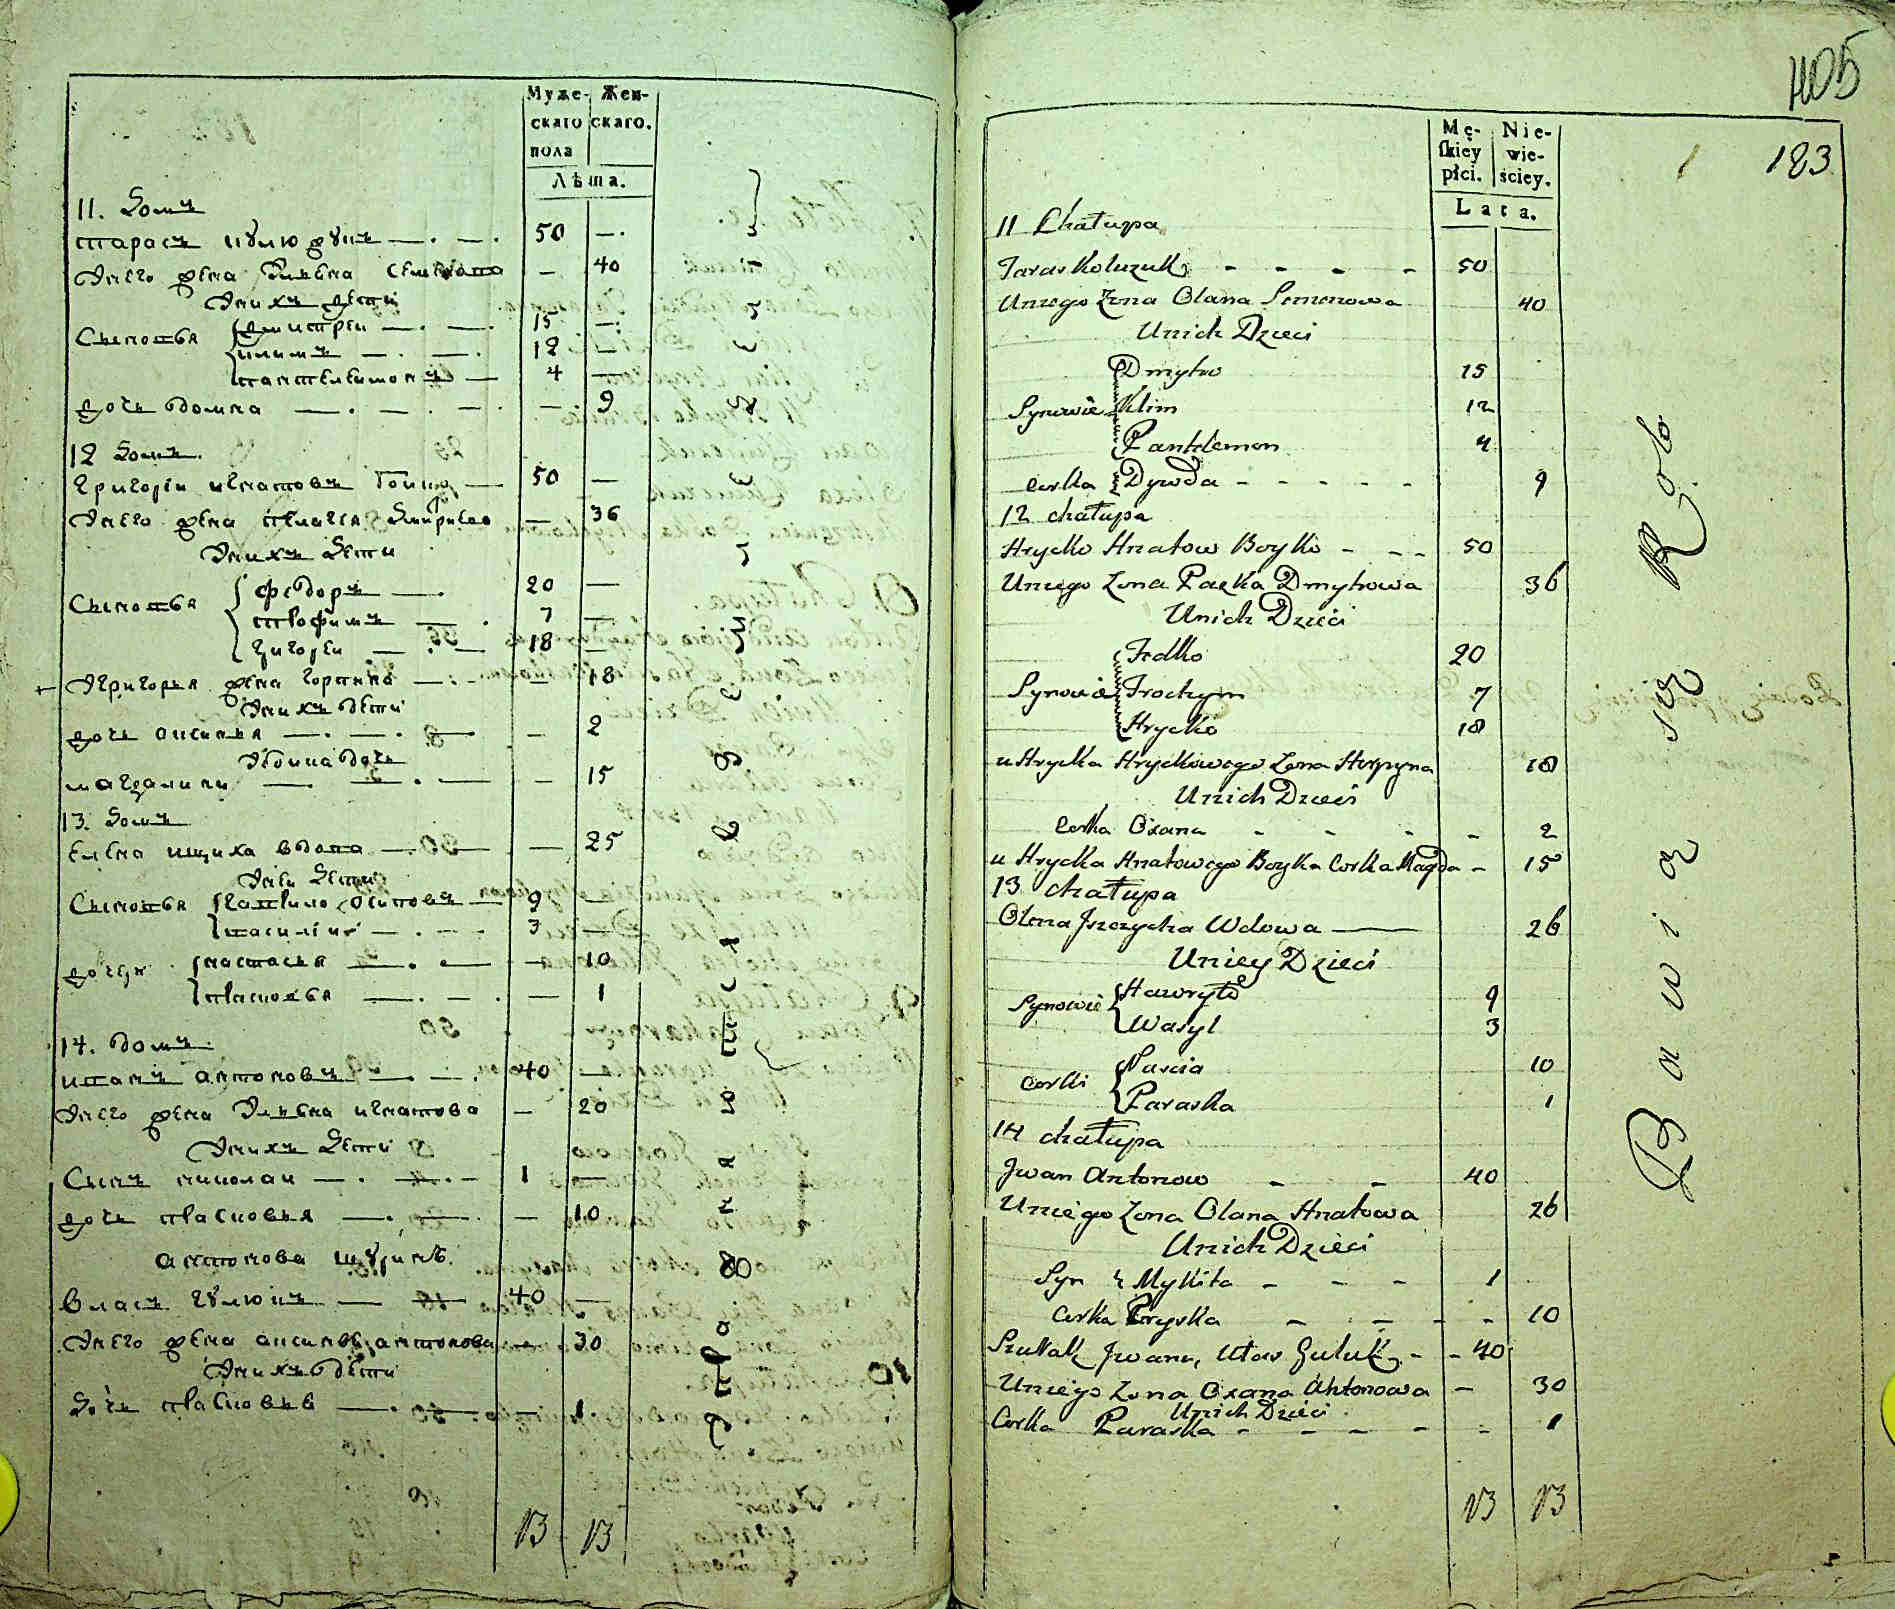 Муже-
скаго
пола
Жен-
скаго.
Лѣта.
11. Домъ
Тарасъ
50 —.
Унего жена
— 40
Унихъ дети
Сыновья
15 —.
Климъ
12 —
Пантелемонъ
4 —
дочь Домна
— 9
12 Домъ.
Григорей Игнатовъ
50 —
Унего жена Пелагея
— 36
Унихъ Дети
Сыновья
Федоръ
20 —
Трофимъ
7 —
Григорей
18 —
У Григорья жена Горпина
— 18
Унихъ дети
дочь Аксинья
— 2
— 15
13. Домъ
Елена Ищиха вдова
— 25
Уней Дети
Сыновья
Гаврило Осиповъ
9 —
Василий
3 —
дочери
Настасья
— 10
Прасковья
— 1
14. Домъ
Иванъ Антоновъ
40 —
Унего жена Игнатова
— 20
Унихъ Дети
Сынъ Николай
1 —
дочь Прасковья
— 10
Антонова
Власъ
40 —
Унего жена Аксинья Антонова
— 30
Унихъ дѣти
Дочь
— 1
13 13
405
183
Mę-
ſkiey
płci.
Nie-
wie-
ściey.
Lata.
11 Chałupa
Taras Koluzuk - - - - 50
Uniego Żona Olana Semenowa 40
Unich Dzieci
Synowie
Dmytro 15
Klim 12
Pantelemon 4
Corka Dywda - - - - - 9
12 chałupa
Hrycko Hnatow Boyko - - - 50
Uniego Żona Paszka Dmytrowa 36
Unich Dzieci
Synowie
Fedko 20
Trochym 7
Hrycko 18
u Hrycka Hryckowego Zona Horpyna 18
Unich Dzieci
Corka Oxana - - - - 2
u Hrycka Hnatowego Boyka Corka Magda - 15
13 chałupa
Olena Jszczycha Wdowa —— 26
Uniey Dzieci
Synowie
Hawryło 9
Wasyl 3
Corki
Nascia 10
Paraska 1
14 chałupa
Jwan Antonow - - 40
Uniego Zona Olana Hnatowa 26
Unich Dzieci
Syn Mykita - - - 1
Corka Pryska - - - - 10
Szwak Jwana, Ułas Guluk - - 40
Uniego Zona Oxana Antonowa - 30
Unich Dzieci
Corka Paraska - - - - - 1
13 13
Bawią się Rolą